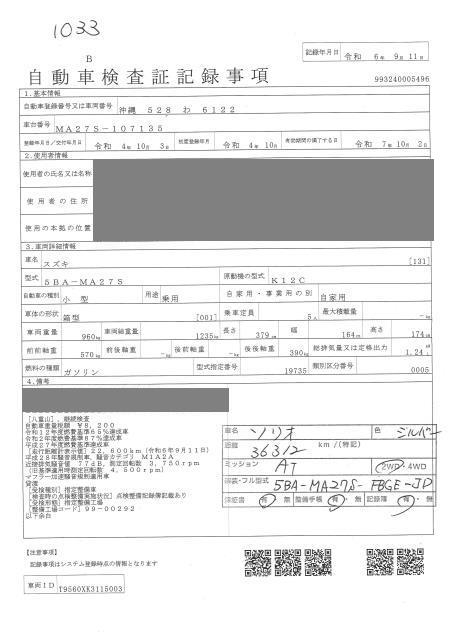 1033
記録年月日 令和 6年 9月 11日
B
自動車検査証記録事項
993240005496
1.基本情報
自動車登録番号又は車両番号 沖縄 528 わ 6122
車台番号 MA27S-107135
登録年月日/交付年月日 令和 4年 10月 3日 初度登録年月 令和 4年 10月 有効期間の満了する日 令和 7年 10月 2日
2.使用者情報
使用者の氏名又は名称
使用者の住所
使用の本拠の位置
3.車両詳細情報
車名 スズキ [131]
型式 5BA-MA27S 原動機の型式 K12C
自動車の種別 小型 用途 乗用 自家用・事業用の別 自家用
車体の形状 箱型 [001] 乗車定員 5人 最大積載量 -kg
車両重量 960kg 車両総重量 1235kg 長さ 379cm 幅 164cm 高さ 174cm
前前軸重 570kg 前後軸重 -kg 後前軸重 -kg 後後軸重 390kg 総排気量又は定格出力 1.24L
燃料の種類 ガソリン 型式指定番号 19735 類別区分番号 0005
4.備考
[八重山],継続検査
自動車重量税額 ¥8,200
令和12年度燃費基準65%達成車
令和2年度燃費基準87%達成車
平成27年度燃費基準達成車
[走行距離計表示値]22,600km(令和6年9月11日)
平成28年騒音規制車,騒音カテゴリ M1A2A
近接排気騒音値 77dB,測定回転数 3,750rpm
(旧基準適用時測定回転数 4,500rpm)
マフラー加速騒音規制適用車
貸渡
[受検種別]指定整備車
[検査時の点検整備実施状況]点検整備記録簿記載あり
[受検形態]指定整備工場
[整備工場コード]99-00292
以下余白
車名 ソリオ 色 シルバー
距離 36312 km/(特記)
ミッション AT 2WD・4WD
フル型式 5BA-MA27S-FBGE-JP
保証書 有・無 整備手帳 有・無 記録簿 有・無
【注意事項】
記録事項はシステム登録時点の情報となります
車両ID T9560XK3115003